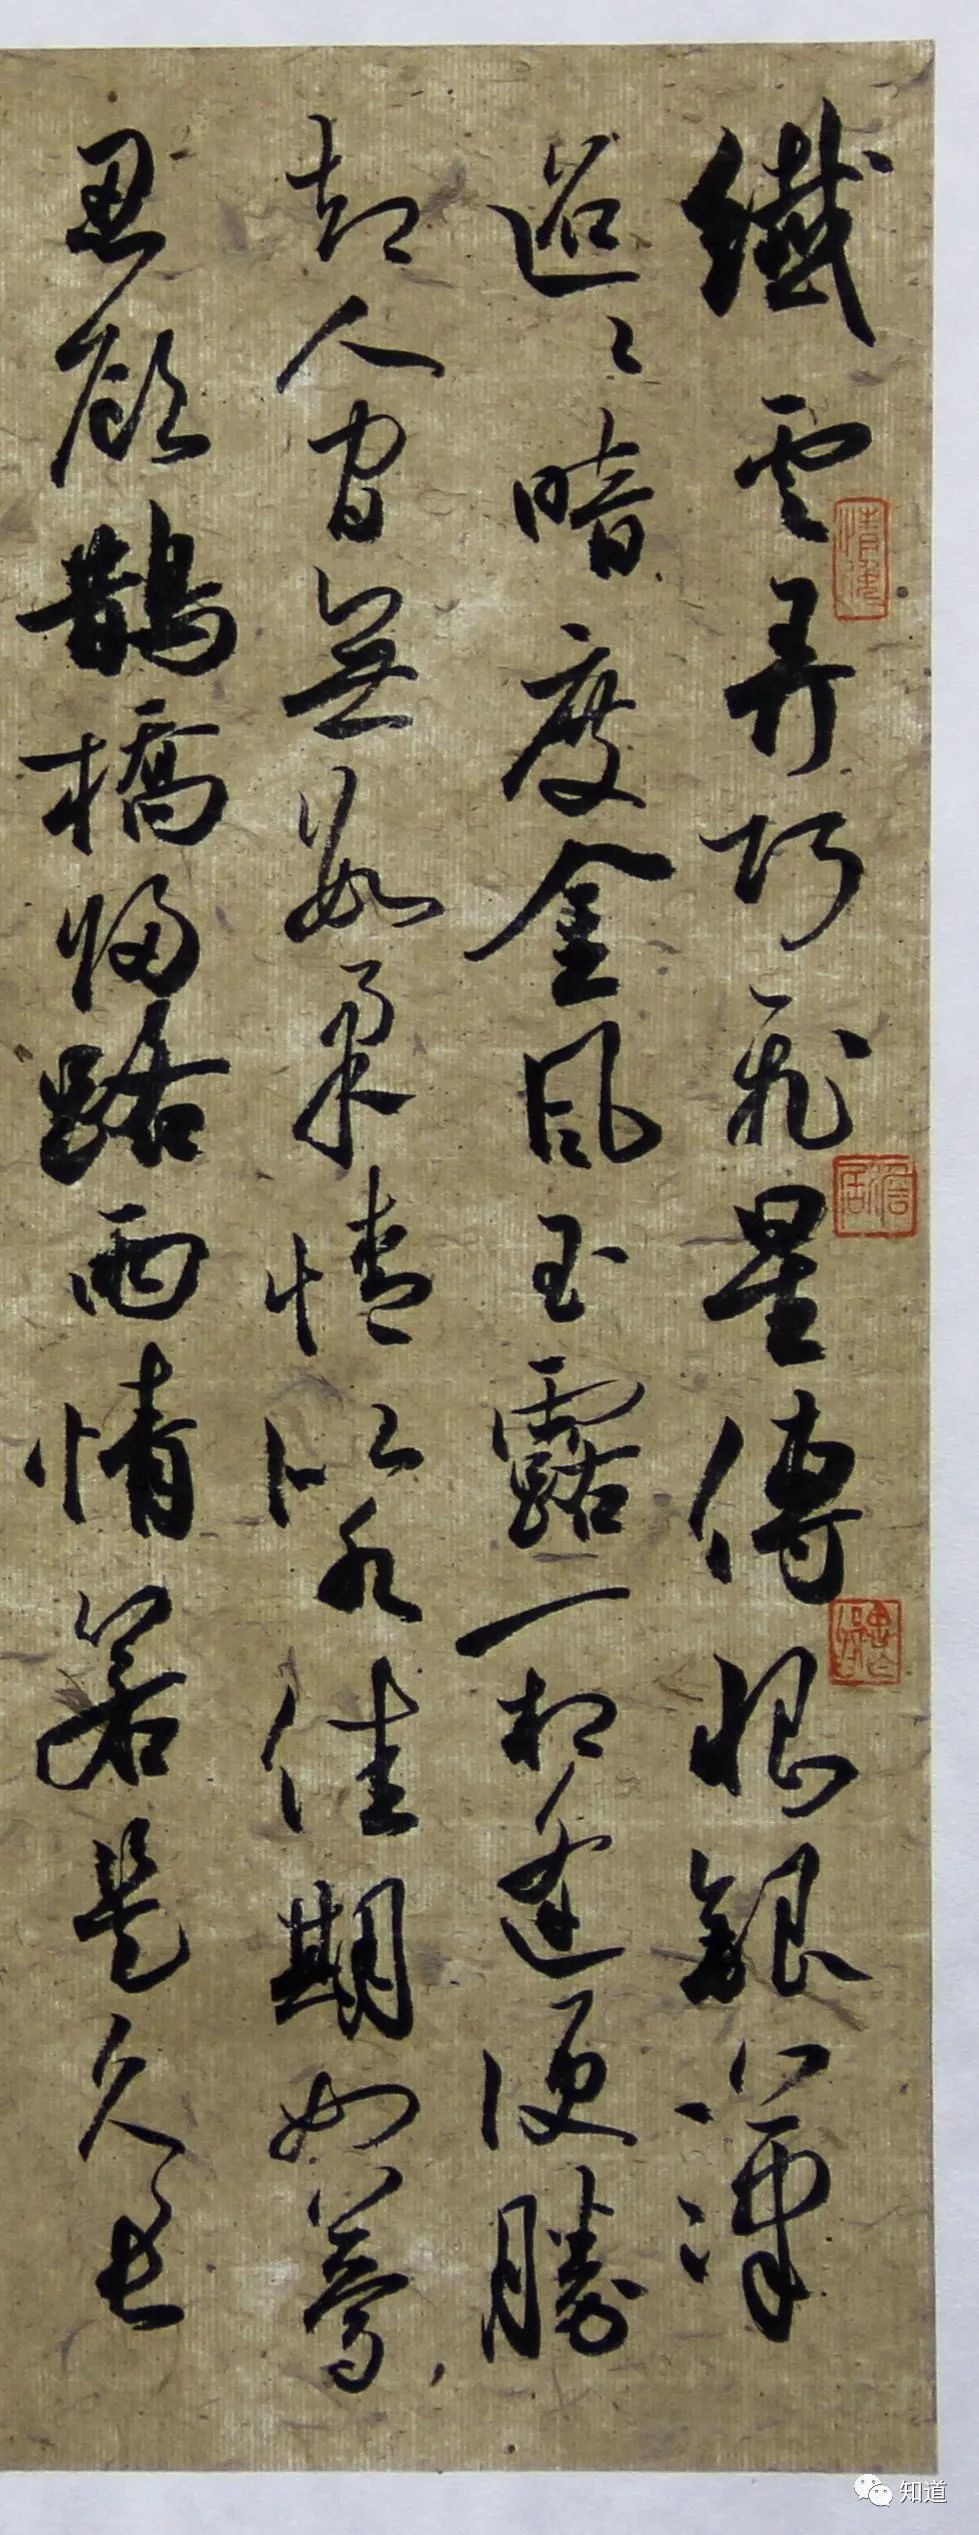 纖雲弄巧飛星傳恨銀漢
迢〻暗度金風玉露一相逢便勝
却人間無數柔情似水佳期如夢
忍顧鵲橋歸路兩情若是久長
知道